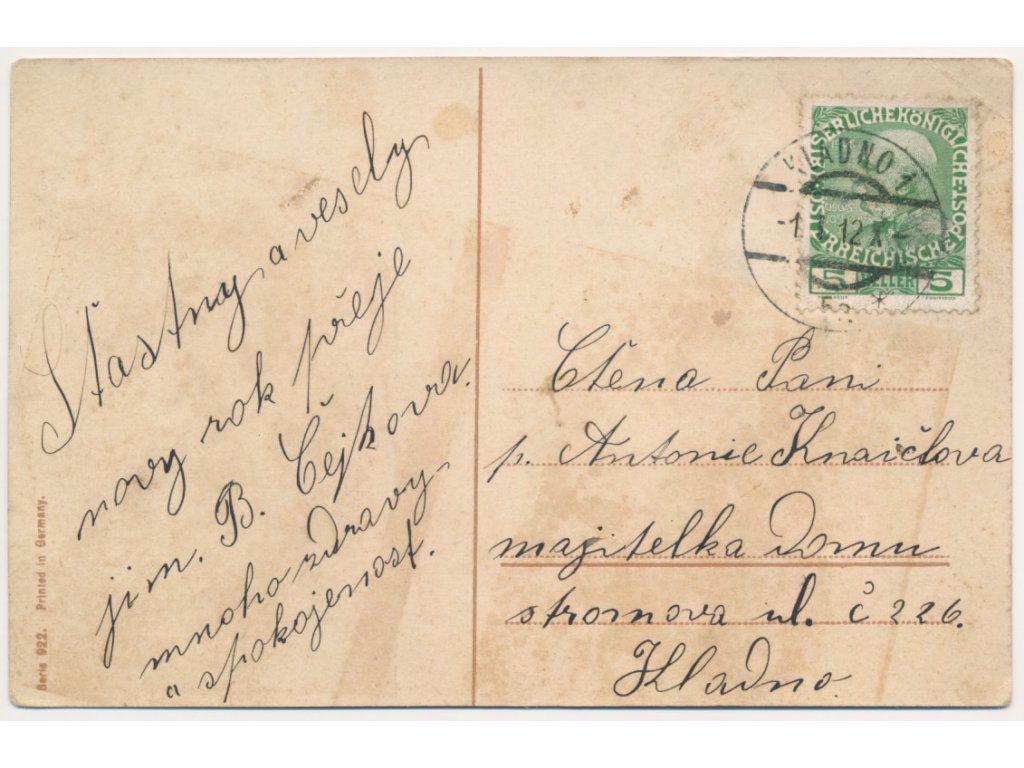 Štastny a vesely
novy rok přeje
jim. B. Čejkova.
mnoho zdravy
a spokojenost.
Serie 922. Printed in Germany.
KAISERLICHE KÖNIGLICHE
ÖSTERREICHISCHE POST
5 HELLER 5
KLADNO 1
-1.1.12
Ctěna Pani
p. Antonie Knaičlova
majitelka Domu
stromova ul. č 226.
Kladno.